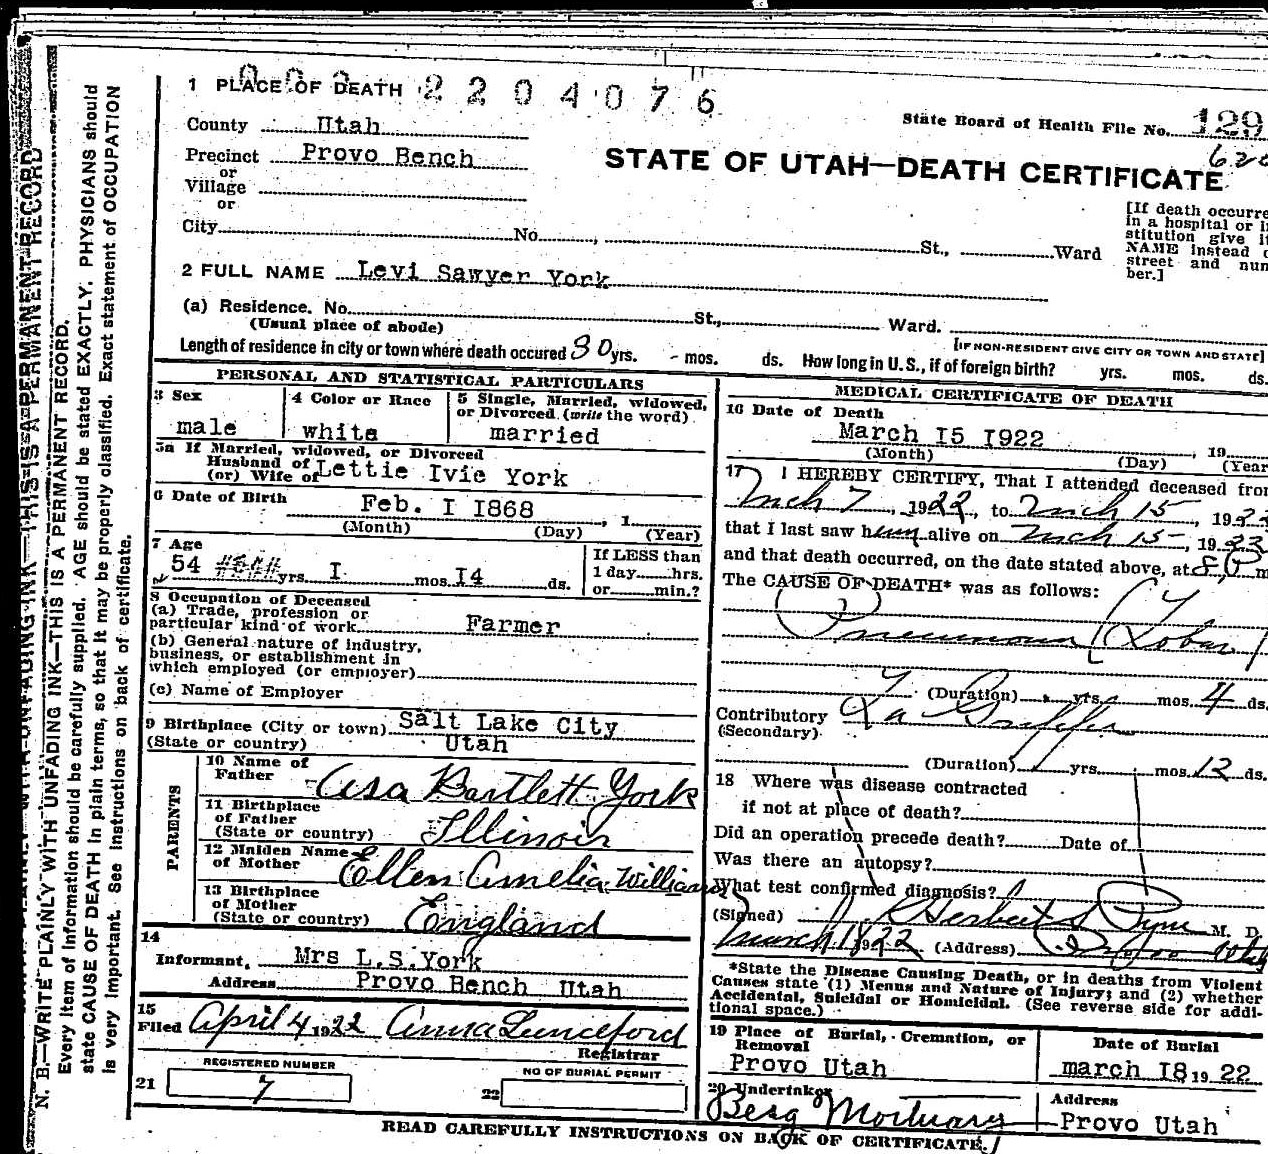 1 PLACE OF DEATH 2204076
State Board of Health File No. 129
County Utah
Precinct Provo Bench
or
Village
or
STATE OF UTAH—DEATH CERTIFICATE
City No. , St., Ward
[If death occurre
in a hospital or in
stitution give it
NAME instead o
street and num
ber.]
2 FULL NAME Levi Sawyer York
(a) Residence. No. St., Ward.
(Usual place of abode)
[IF NON-RESIDENT GIVE CITY OR TOWN AND STATE]
Length of residence in city or town where death occured 30 yrs. - mos. ds. How long in U.S., if of foreign birth? yrs. mos. ds.
PERSONAL AND STATISTICAL PARTICULARS
3 Sex
male
4 Color or Race
white
5 Single, Married, widowed,
or Divorced (write the word)
married
5a If Married, widowed, or Divorced
Husband of
(or) Wife of Lettie Ivie York
6 Date of Birth
Feb. I I868, 1
(Month) (Day) (Year)
7 Age
54 yrs. I mos. I4 ds.
If LESS than
1 day hrs.
or min.?
8 Occupation of Deceased
(a) Trade, profession or
particular kind of work Farmer
(b) General nature of industry,
business, or establishment in
which employed (or employer)
(c) Name of Employer
9 Birthplace (City or town) Salt Lake City
(State or country) Utah
PARENTS
10 Name of
Father Asa Bartlett York
11 Birthplace
of Father
(State or country) Illinois
12 Maiden Name
of Mother Ellen Amelia Williams
13 Birthplace
of Mother
(State or country) England
14
Informant, Mrs L.S.York
Address Provo Bench Utah
15
Filed April 4 1922 Anna Lunceford
Registrar
REGISTERED NUMBER
21 7
NO OF BURIAL PERMIT
22
MEDICAL CERTIFICATE OF DEATH
16 Date of Death
March I5 I922, 19
(Month) (Day) (Year
17 I HEREBY CERTIFY, That I attended deceased from
Mch 7, 1922, to Mch 15, 1922
that I last saw him alive on Mch 15, 1922
and that death occurred, on the date stated above, at 8 P m
The CAUSE OF DEATH* was as follows:
Pneumonia (Lobar)
(Duration) yrs. mos. 4 ds.
Contributory La Grippe
(Secondary)
(Duration) yrs. mos. 12 ds.
18 Where was disease contracted
if not at place of death?
Did an operation precede death? Date of
Was there an autopsy?
What test confirmed diagnosis?
(Signed) J. Herbert Pyne M. D.
March 18 1922 (Address) Provo Utah
*State the Disease Causing Death, or in deaths from Violent
Causes state (1) Menus and Nature of Injury; and (2) whether
Accidental, Suicidal or Homicidal. (See reverse side for addi-
tional space.)
19 Place of Burial, Cremation, or
Removal
Provo Utah
Date of Burial
march I8 19 22
20 Undertaker
Berg Mortuary
Address
Provo Utah
READ CAREFULLY INSTRUCTIONS ON BACK OF CERTIFICATE.
N. B.—WRITE PLAINLY WITH UNFADING INK—THIS IS A PERMANENT RECORD.
Every item of information should be carefully supplied. AGE should be stated EXACTLY. PHYSICIANS should
state CAUSE OF DEATH in plain terms, so that it may be properly classified. Exact statement of OCCUPATION
is very important. See instructions on back of certificate.